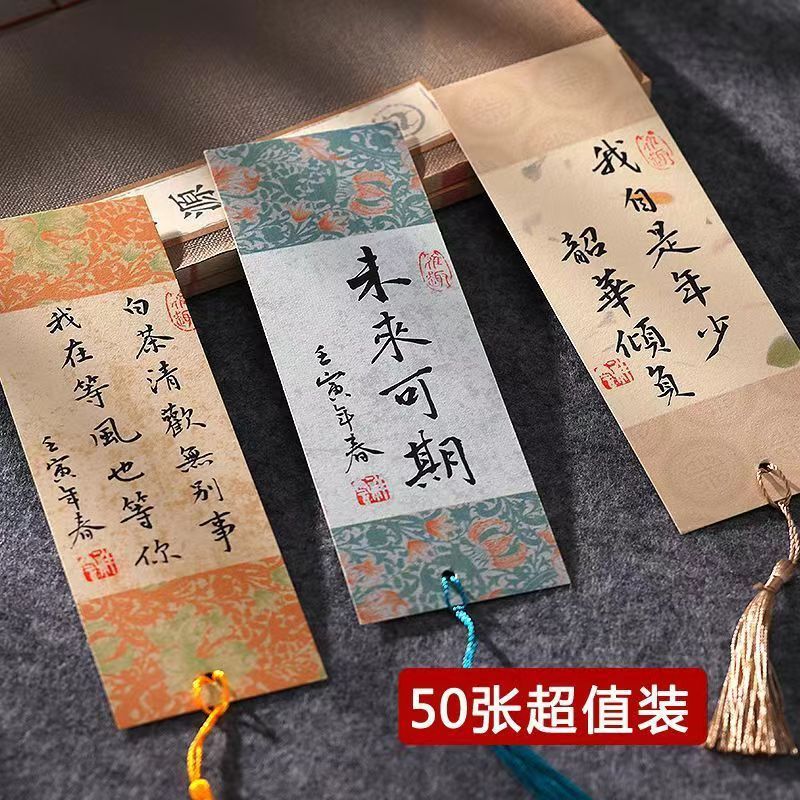 白茶清歡無別事
我在等風也等你
壬寅年春
未來可期
壬寅年春
我自是年少
韶華傾負
源
50张超值装